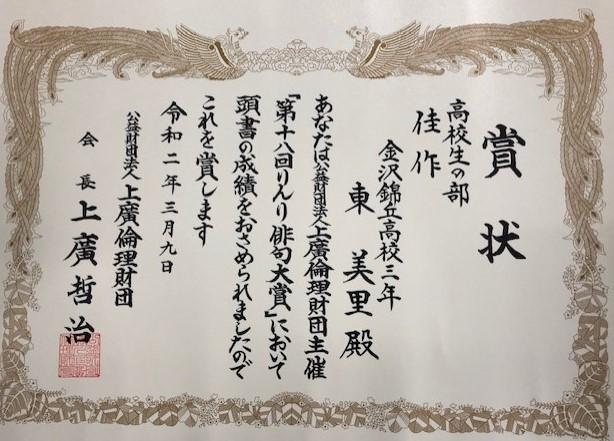 賞状
高校生の部
佳作
金沢錦丘高校三年
東美里殿
あなたは公益財団法人上廣倫理財団主催
「第十八回りんり俳句大賞」において
頭書の成績をおさめられましたので
これを賞します
令和二年三月九日
公益財団法人上廣倫理財団
会長上廣哲治